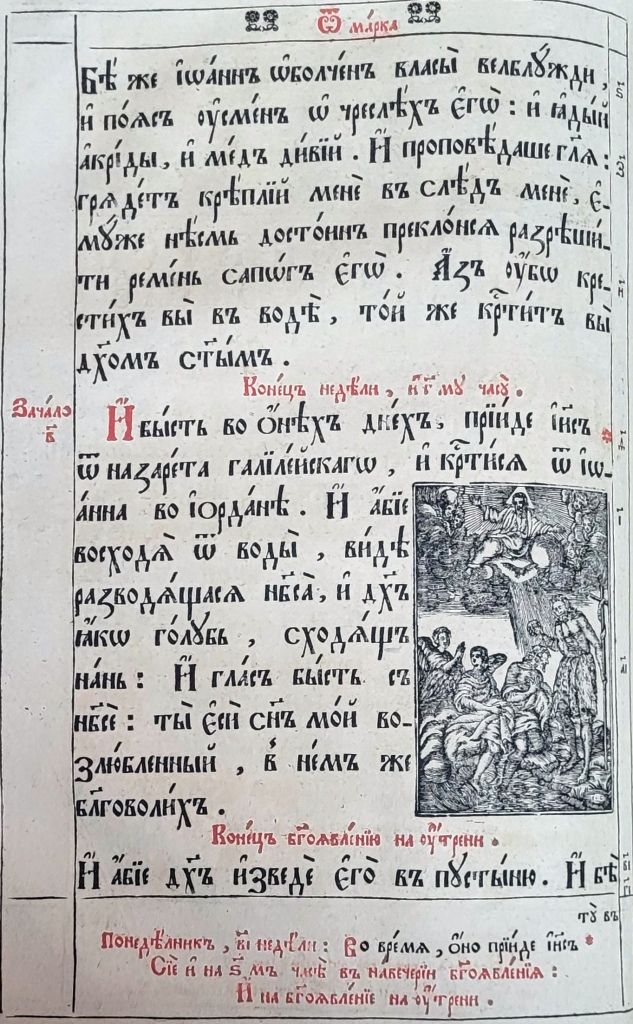 Ѿ ма́рка
Бѣ́ же і҆ѡа́ннъ ѡ҆болче́нъ власы̀ велблꙋ́жди,
и҆ по́ѧсъ ᲂу҆сме́нъ ѡ҆ чреслѣ́хъ є҆гѡ̀: и҆ ꙗ҆ды́й
а҆кри́ды, и҆ ме́дъ ди́вїй. И҆ проповѣ́даше гл҃ѧ:
грѧде́тъ крѣ́плїй менє̀ въ слѣ́дъ менє̀, є҆-
мꙋ́же нѣ́смь досто́инъ прекло́нсѧ разрѣши́-
ти реме́нь сапѡ́гъ є҆гѡ̀. А҆́зъ ᲂу҆́бѡ кре-
сти́хъ вы̀ въ водѣ̀, то́й же крⷭ҇ти́тъ вы̀
дх҃омъ ст҃ы́мъ.
Коне́цъ недѣ́ли, и҆ г҃ мꙋ часꙋ̀.
Зача́ло
в҃
И҆ бы́сть во ѻ҆́нѣхъ дне́хъ, прїи́де і҆и҃съ
ѿ назаре́та галїле́йскагѡ, и҆ крⷭ҇ти́сѧ ѿ і҆ѡ-
а́нна во і҆ѻрда́нѣ. И҆ а҆́бїе
восходѧ̀ ѿ воды̀, ви́дѣ
разводѧ́щасѧ нб҃са̀, и҆ дх҃ъ
ꙗ҆́кѡ го́лꙋбь, сходѧ́щъ
на́нь: И҆ гла́съ бы́сть съ
нб҃сѐ: ты̀ є҆сѝ сн҃ъ мо́й во-
злю́бленный, в̾ не́мъ же
бл҃говоли́хъ.
Коне́цъ бг҃оꙗвле́нїю на ᲂу҆́трени.
И҆ а҆́бїе дх҃ъ и҆зведѐ є҆го̀ въ пꙋсты́ню. И҆ бѣ̀
тꙋ̀ въ
Понедѣ́лникъ, в҃і недѣ́ли: Во вре́мѧ, ѻ҆́но прїи́де і҆и҃съ
Сїѐ и҆ на ѕ҃ мъ часѣ̀ въ навече́рїи бг҃оꙗвле́нїѧ:
И҆ на бг҃оꙗвле́нїе на ᲂу҆́трени.